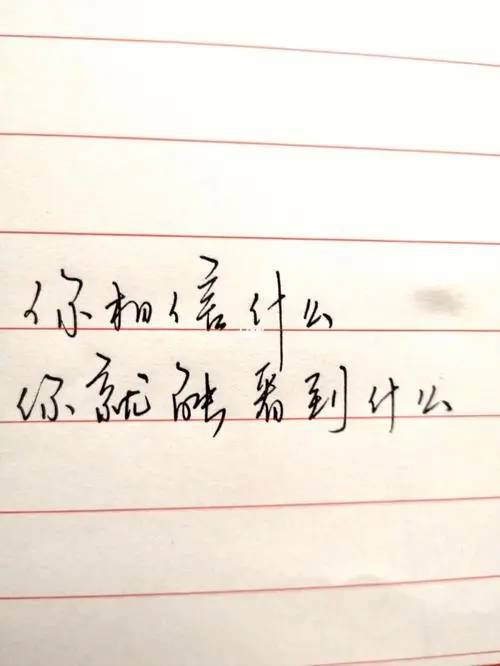 你相信什么
你就能看到什么